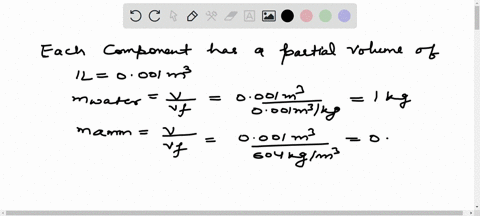 Each Component has a partial volume of
1L = 0.001 m³
mwater = V/νf = 0.001 m³/0.001 m³/kg = 1 kg
mamm = V/νf = 0.001 m³/604 kg/m³ = 0.